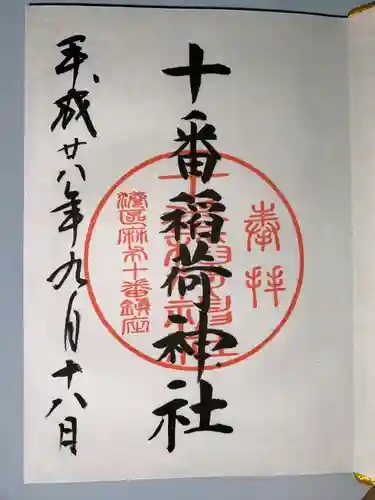 奉拝
十番稲荷神社
港區麻布十番鎮座
平成廿八年九月十八日